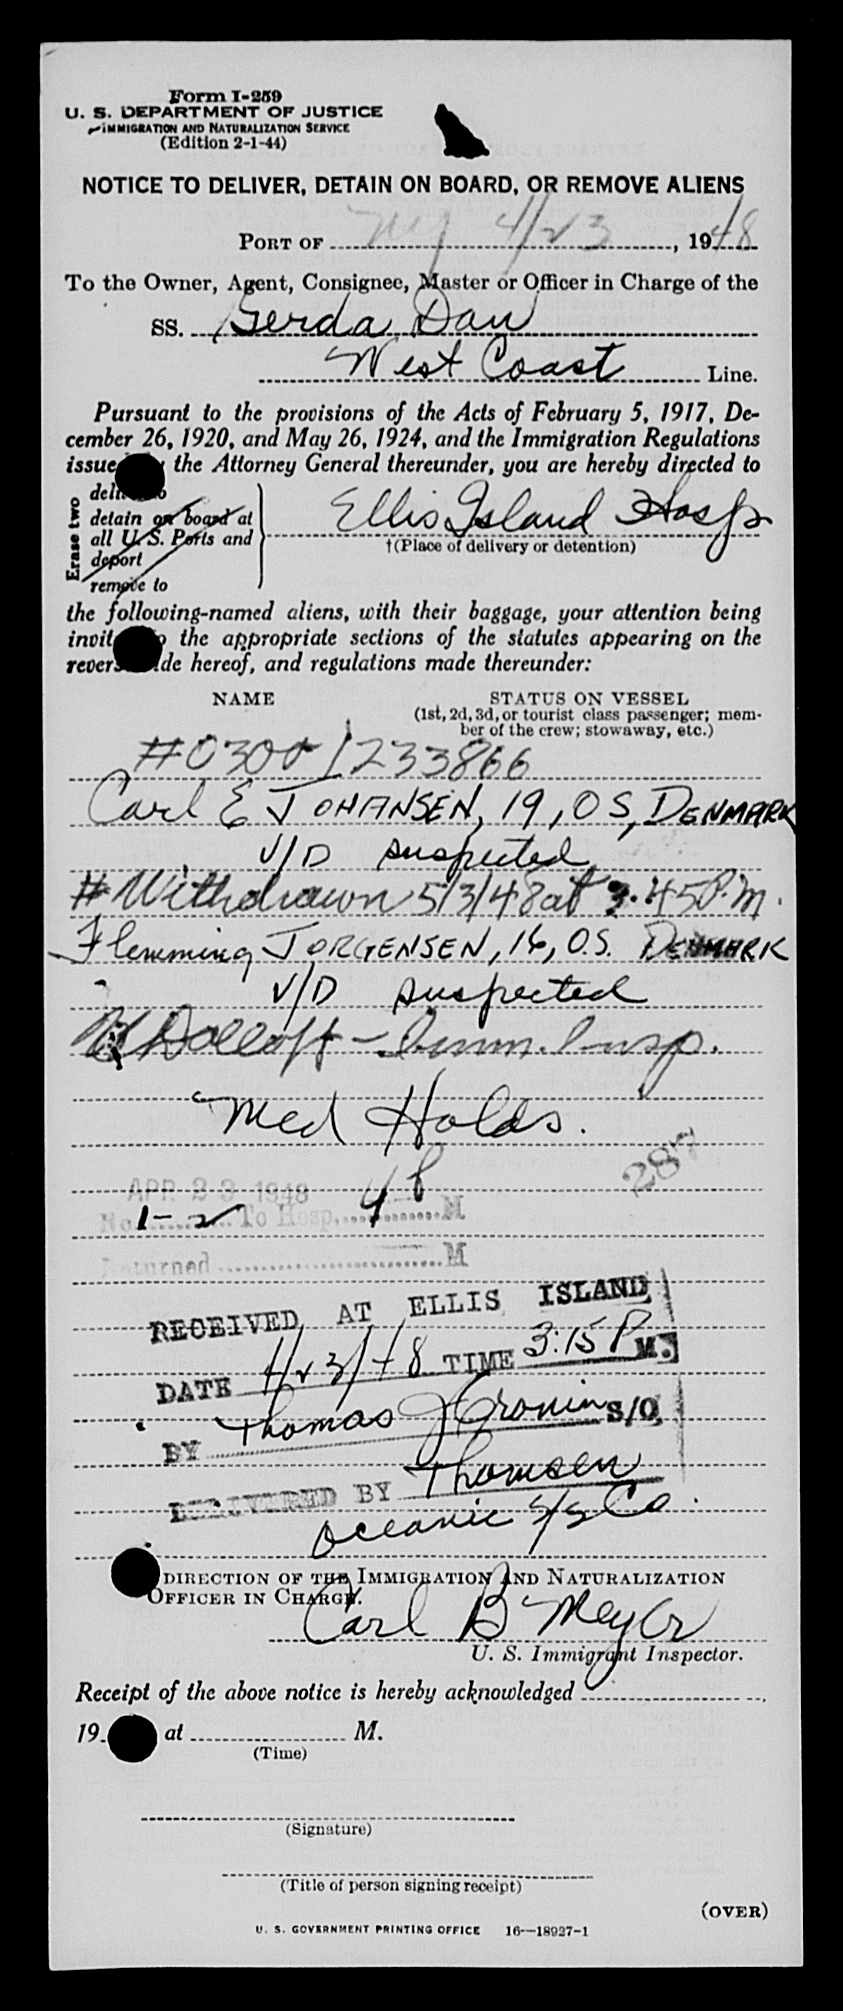 Form I-259
U. S. DEPARTMENT OF JUSTICE
IMMIGRATION AND NATURALIZATION SERVICE
(Edition 2-1-44)
NOTICE TO DELIVER, DETAIN ON BOARD, OR REMOVE ALIENS
PORT OF NY 4/23, 1948
To the Owner, Agent, Consignee, Master or Officer in Charge of the
SS. Gerda Dan
West Coast Line.
Pursuant to the provisions of the Acts of February 5, 1917, De-
cember 26, 1920, and May 26, 1924, and the Immigration Regulations
issue the Attorney General thereunder, you are hereby directed to
Erase two
deli
detain on board at
all U. S. Ports and
deport
remove to
Ellis Island Hosp
†(Place of delivery or detention)
the following-named aliens, with their baggage, your attention being
invit the appropriate sections of the statutes appearing on the
revers ide hereof, and regulations made thereunder:
NAME STATUS ON VESSEL
(1st, 2d, 3d, or tourist class passenger; mem-
ber of the crew; stowaway, etc.)
#0300 / 233866
Carl E JOHANSEN, 19, OS, DENMARK
V/D suspected
# Withdrawn 5/3/48 at 3.45 P.M.
Flemming JORGENSEN, 16, O.S. DENMARK
V/D suspected
Dolloff - Imm. Insp.
Med Holds.
287
APR 23 1948
No. 1-2 To Hosp. 4 P M
Returned M
RECEIVED AT ELLIS ISLAND
DATE 4/23/48 TIME 3:15 P M.
BY Thomas J Cronin S/O
DELIVERED BY Thomsen
Oceanic S/S Co.
DIRECTION OF THE IMMIGRATION AND NATURALIZATION
OFFICER IN CHARGE.
Carl B Meyer
U. S. Immigrant Inspector.
Receipt of the above notice is hereby acknowledged
19 at M.
(Time)
(Signature)
(Title of person signing receipt)
(OVER)
U. S. GOVERNMENT PRINTING OFFICE 16—18927-1